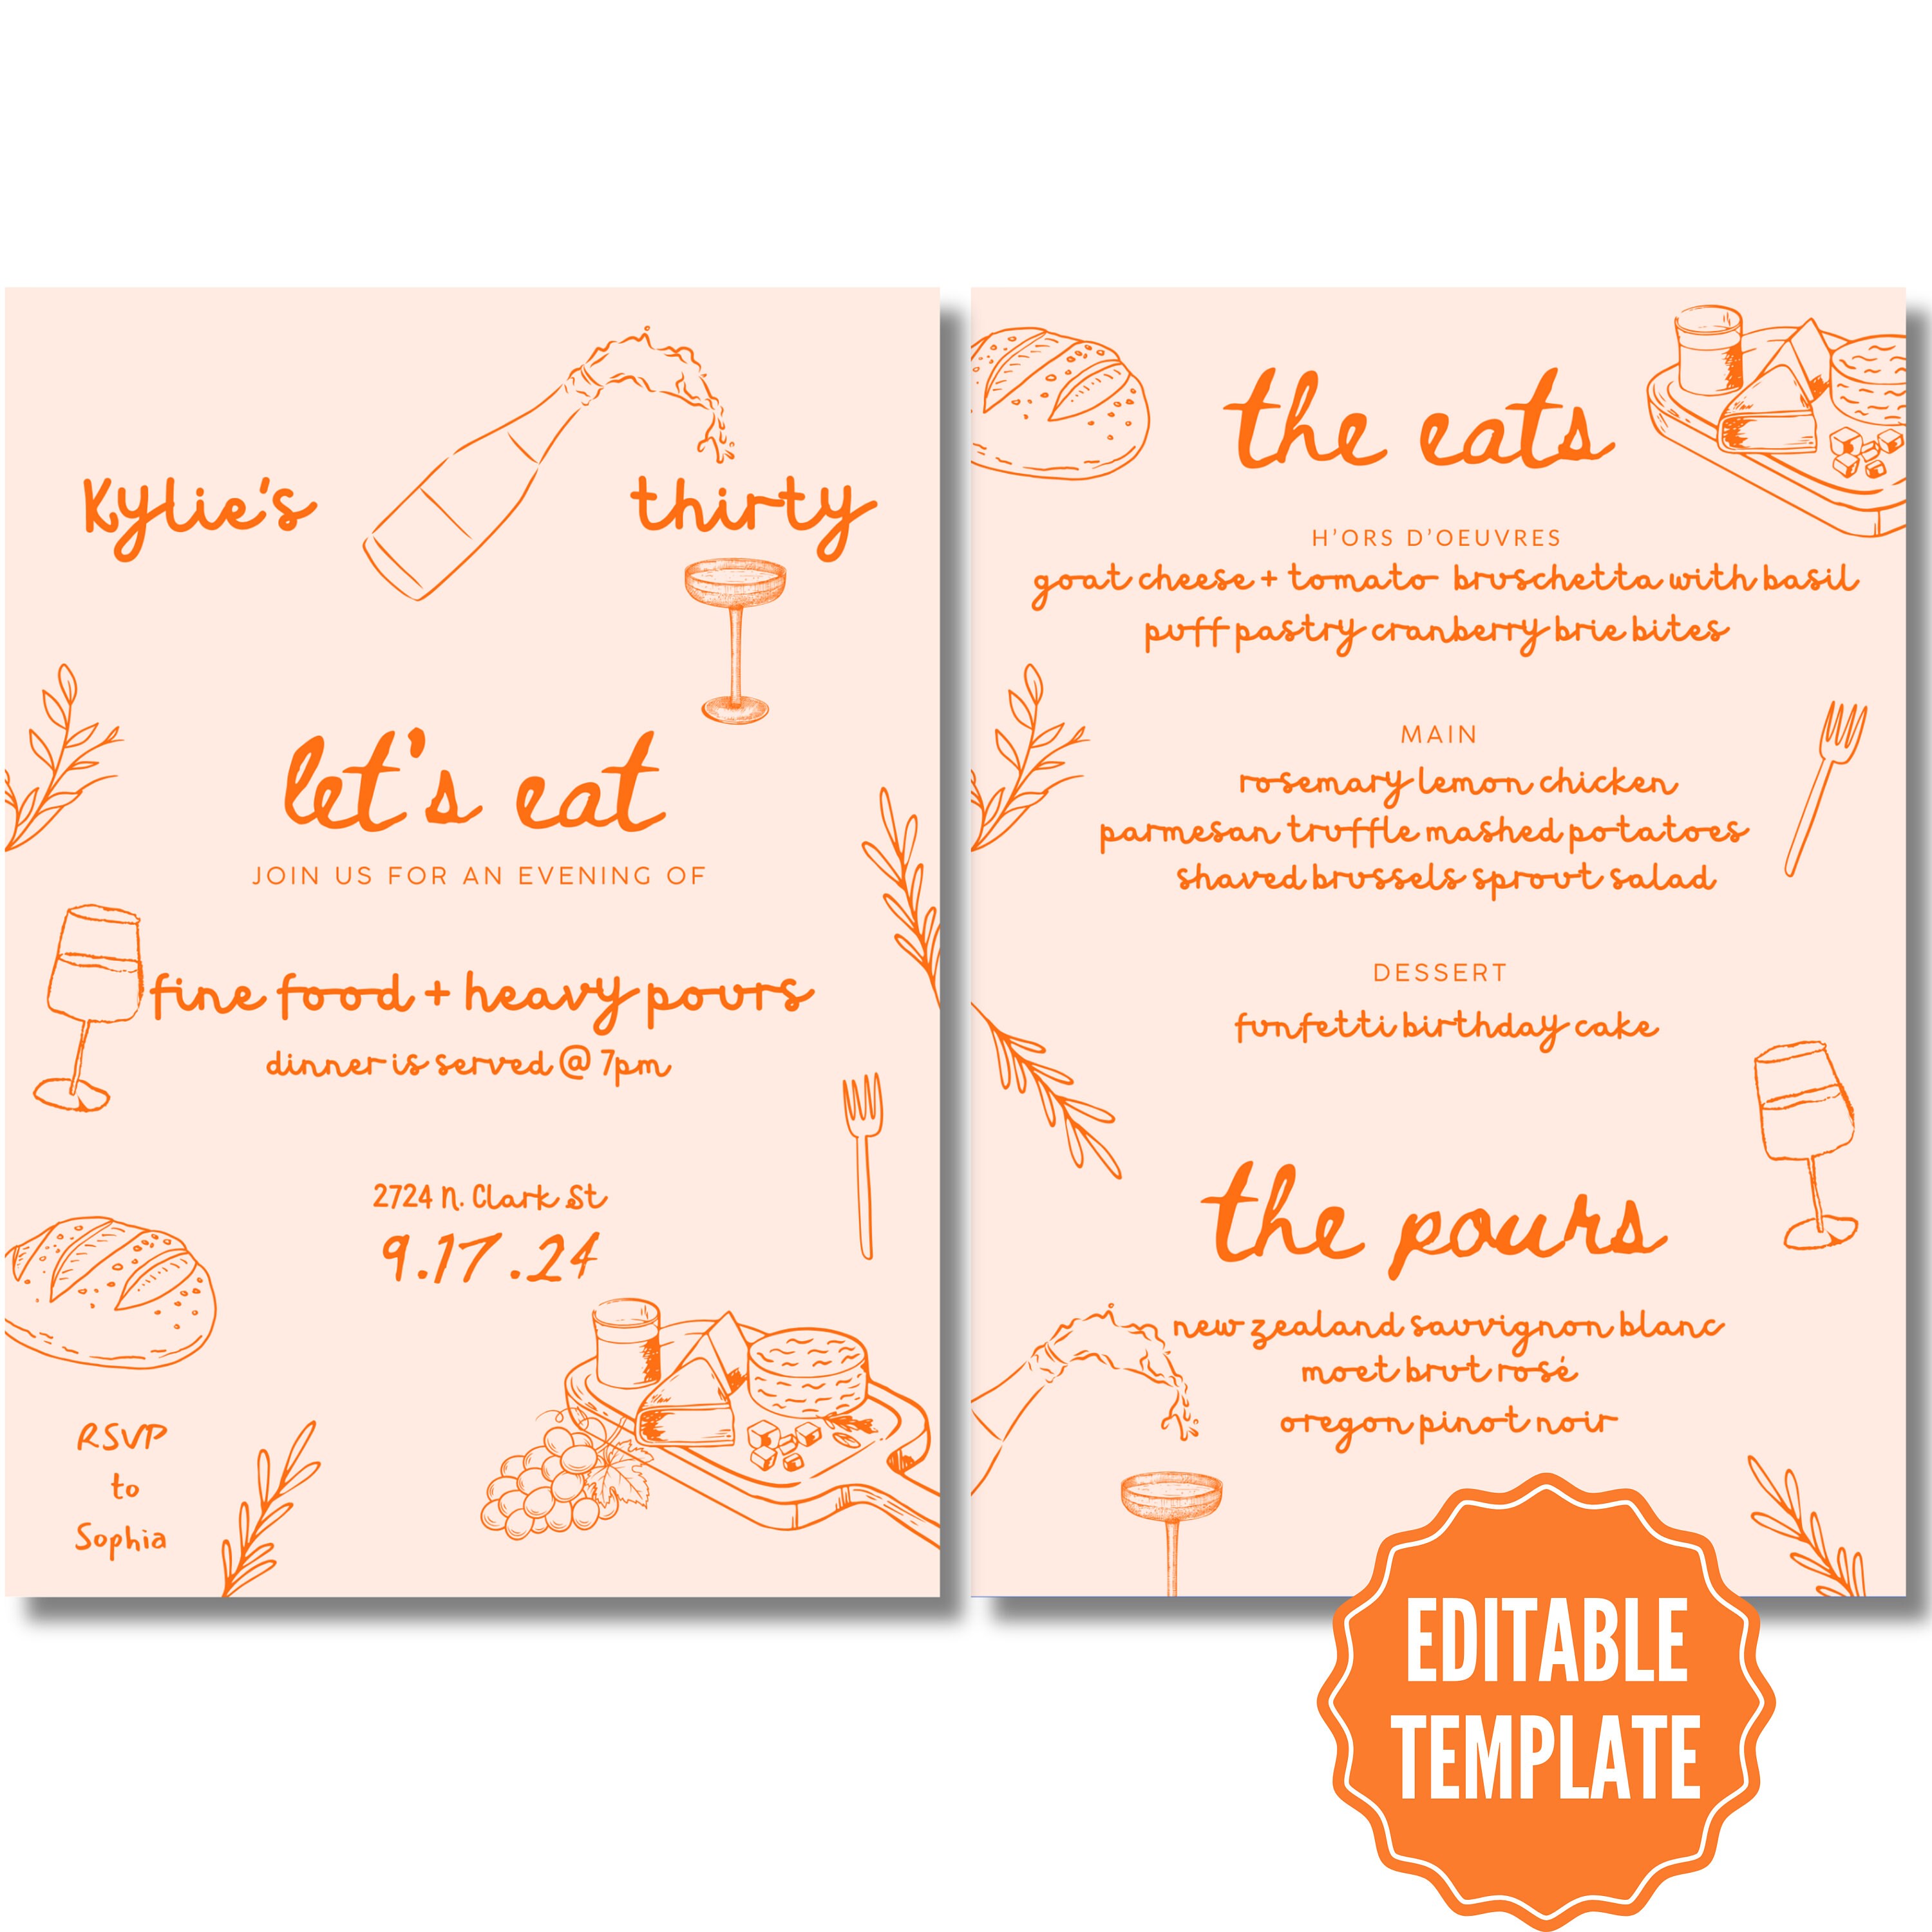 Kylie's thirty
let's eat
JOIN US FOR AN EVENING OF
fine food + heavy pours
dinner is served @ 7pm
2724 N. Clark St
9.17.24
RSVP
to
Sophia
the eats
H'ORS D'OEUVRES
goat cheese + tomato bruschetta with basil
puff pastry cranberry brie bites
MAIN
rosemary lemon chicken
parmesan truffle mashed potatoes
shaved brussels sprout salad
DESSERT
funfetti birthday cake
the pours
new zealand sauvignon blanc
moet brut rosé
oregon pinot noir
EDITABLE
TEMPLATE